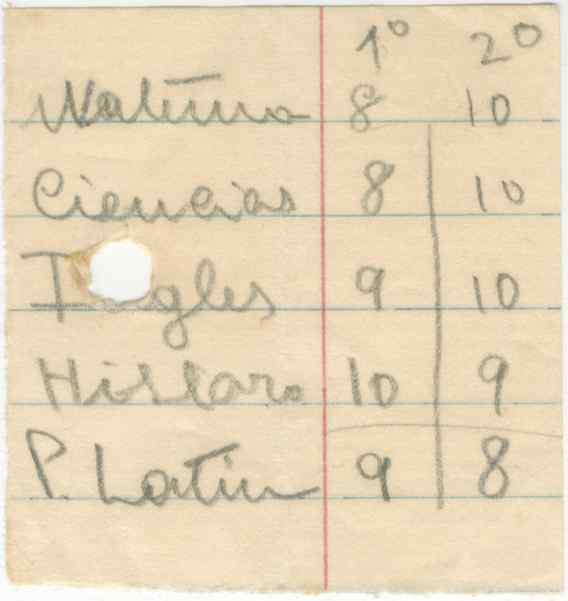 1º 2º
8 10
Ciencias 8 10
I gles 9 10
10 9
P. Latin 9 8